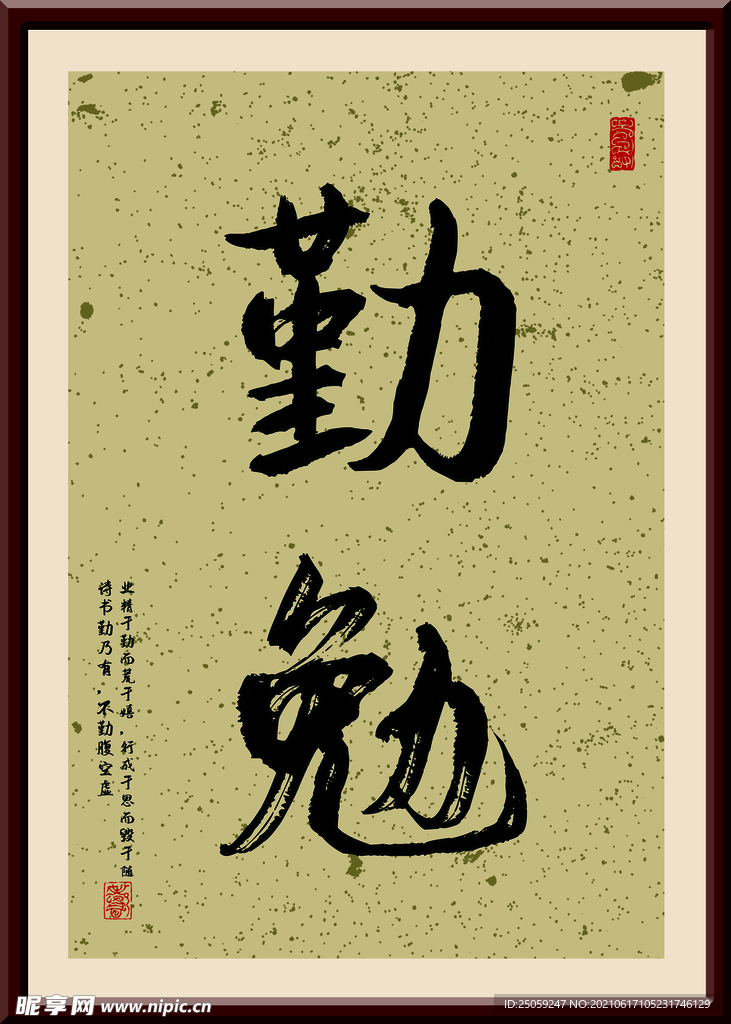 勤
勉
业精于勤而荒于嬉，行成于思而毁于随
诗书勤乃有，不勤腹空虚
昵享网 www.nipic.cn
ID:25059247 NO:20210617105231746129